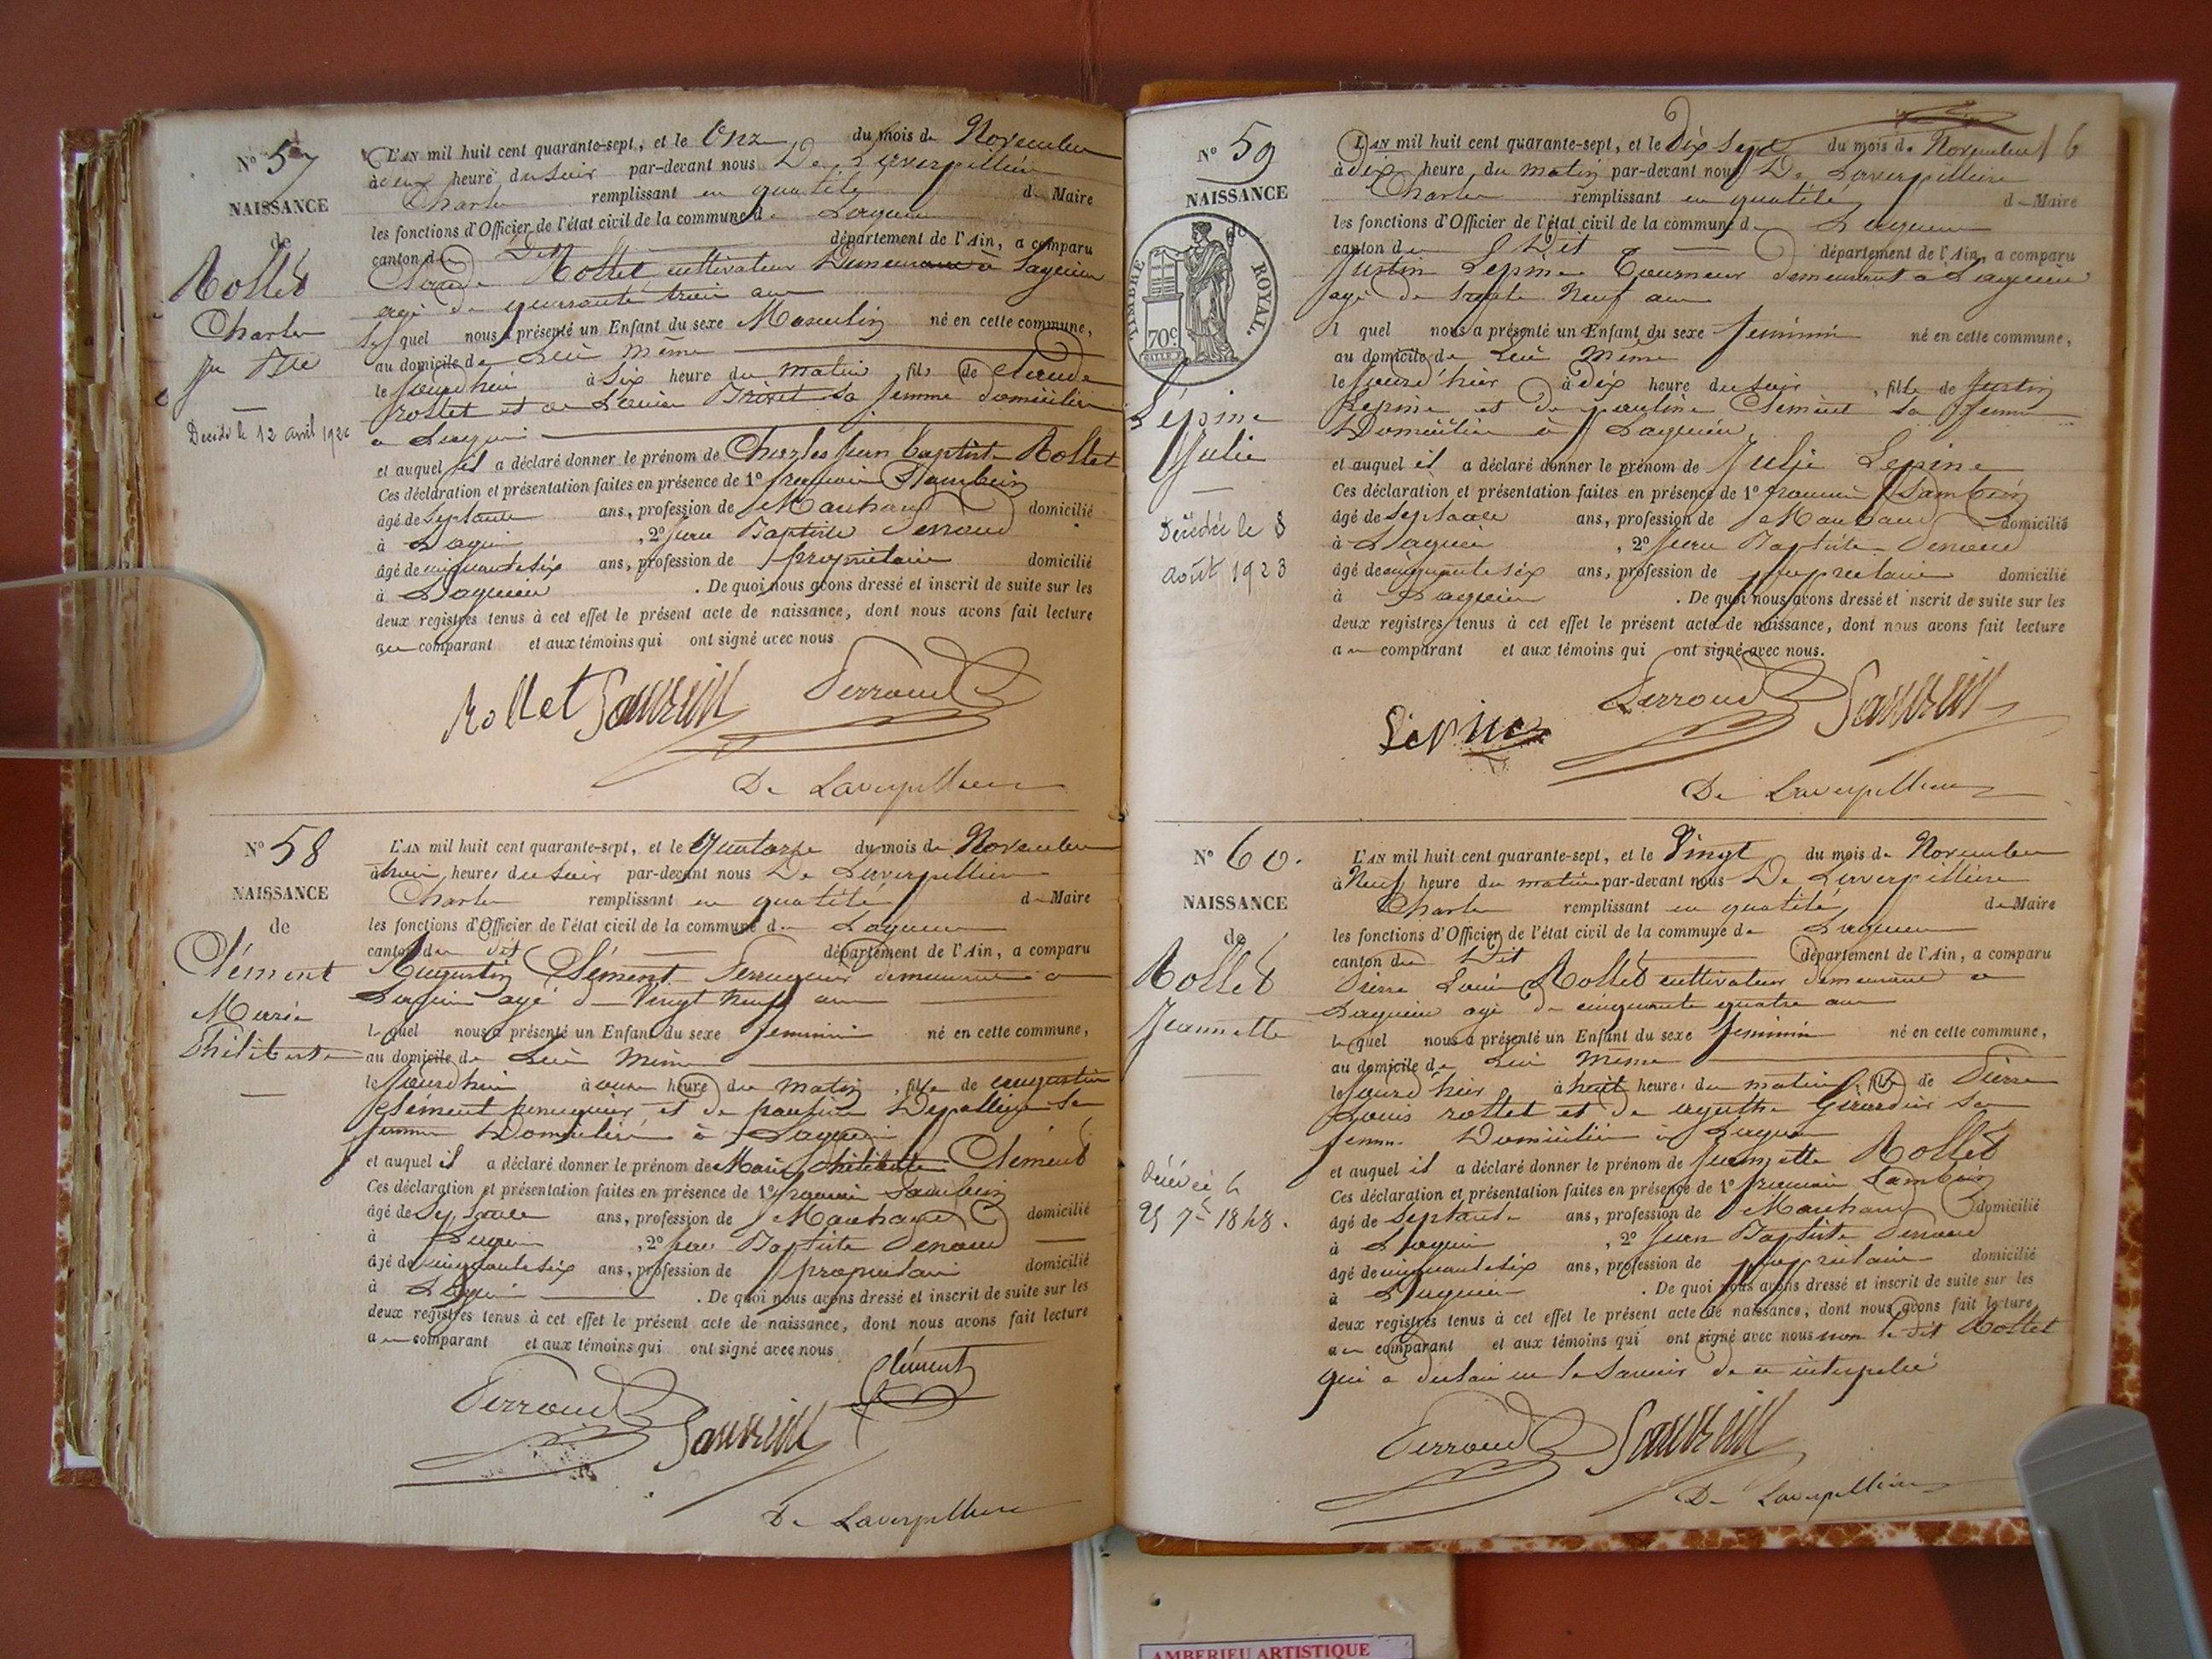 N° 57
NAISSANCE
de
Rollet
Charles
Jn Bte
Décédé le 12 avril
L'AN mil huit cent quarante-sept, et le Onze du mois de Novembre
à deux heure du soir par-devant nous De Laverpillière
Charles remplissant en qualité de Maire
les fonctions d'Officier de l'état civil de la commune de Lagnieu
canton du Dit département de l'Ain, a comparu
Claude Rollet cultivateur Demeurant à Lagnieu
agé de quarante trois ans
lequel nous a présenté un Enfant du sexe Masculin né en cette commune,
au domicile de Lui même
le Jourdhui à Six heure du matin, fils de Claude
rollet et de Louise Brivet sa femme domiciliés
a Lagnieu
et auquel il a déclaré donner le prénom de Charles Jean baptiste Rollet
Ces déclaration et présentation faites en présence de 1° françois
âgé de Septante ans, profession de Marchand domicilié
à Lagnieu, 2° Jean Baptiste
âgé de cinquante six ans, profession de propriétaire domicilié
à Lagnieu. De quoi nous avons dressé et inscrit de suite sur les
deux registres tenus à cet effet le présent acte de naissance, dont nous avons fait lecture
au comparant et aux témoins qui ont signé avec nous
Rollet Perroud
De Laverpilliere
N° 58
NAISSANCE
de
Clément
Marie
Philiberte
L'AN mil huit cent quarante-sept, et le Quatorze du mois de Novembre
à trois heures du soir par-devant nous De Laverpillière
Charles remplissant en qualité de Maire
les fonctions d'Officier de l'état civil de la commune de Lagnieu
canton du dit département de l'Ain, a comparu
Augustin Clément Perruquier demeurant a
Lagnieu agé de Vingt neuf ans
lequel nous a présenté un Enfant du sexe feminin né en cette commune,
au domicile de Lui même
le Jourdhui à onze heure du matin, fille de augustin
Clément perruquier et de sa
femme Domiciliés à Lagnieu
et auquel il a déclaré donner le prénom de Marie philiberte Clément
Ces déclaration et présentation faites en présence de 1° françois
âgé de Septante ans, profession de Marchand domicilié
à Lagnieu, 2° Jean Baptiste
âgé de cinquante six ans, profession de propriétaire domicilié
à Lagnieu. De quoi nous avons dressé et inscrit de suite sur les
deux registres tenus à cet effet le présent acte de naissance, dont nous avons fait lecture
au comparant et aux témoins qui ont signé avec nous
Clément
Perroud
De Laverpilliere
N° 59
NAISSANCE
TIMBRE ROYAL
70c
Lépine
Julie
Décédée le 8
août 1923
L'AN mil huit cent quarante-sept, et le Dix Sept du mois de Novembre 16
à dix heure du matin par-devant nous De Laverpilliere
Charles remplissant en qualité de Maire
les fonctions d'Officier de l'état civil de la commune de Lagnieu
canton du Dit département de l'Ain, a comparu
Justin Lepine Tourneur demeurant a Lagnieu
agé de trente Neuf ans
lequel nous a présenté un Enfant du sexe feminin né en cette commune,
au domicile de Lui même
le Jourd'hier à dix heure du soir, fille de Justin
Lepine et de pauline Clément sa femme
Domiciliés à Lagnieu
et auquel il a déclaré donner le prénom de Julie Lepine
Ces déclaration et présentation faites en présence de 1° françois
âgé de Septante ans, profession de Marchand domicilié
à Lagnieu, 2° Jean Baptiste
âgé de cinquante six ans, profession de propriétaire domicilié
à Lagnieu. De quoi nous avons dressé et inscrit de suite sur les
deux registres tenus à cet effet le présent acte de naissance, dont nous avons fait lecture
au comparant et aux témoins qui ont signé avec nous.
Perroud
Lépine
De Laverpilliere
N° 60.
NAISSANCE
de
Rollet
Jeannette
Décédée le
25 7re 1848.
L'AN mil huit cent quarante-sept, et le Vingt du mois de Novembre
à Neuf heure du matin par-devant nous De Laverpilliere
Charles remplissant en qualité de Maire
les fonctions d'Officier de l'état civil de la commune de Lagnieu
canton du Dit département de l'Ain, a comparu
Pierre Louis Rollet cultivateur demeurant a
Lagnieu agé de cinquante quatre ans
lequel nous a présenté un Enfant du sexe feminin né en cette commune,
au domicile de Lui même
le Jourd'hier à huit heure du matin, fille de Pierre
Louis rollet et de agathe Girardier sa
femme Domiciliés à Lagnieu
et auquel il a déclaré donner le prénom de Jeannette Rollet
Ces déclaration et présentation faites en présence de 1° françois
âgé de Septante ans, profession de Marchand domicilié
à Lagnieu, 2° Jean Baptiste
âgé de cinquante six ans, profession de propriétaire domicilié
à Lagnieu. De quoi nous avons dressé et inscrit de suite sur les
deux registres tenus à cet effet le présent acte de naissance, dont nous avons fait lecture
au comparant et aux témoins qui ont signé avec nous non le dit Rollet
qui a déclaré ne le savoir de ce interpellé
Perroud
De Laverpilliere
AMBERIEU ARTISTIQUE